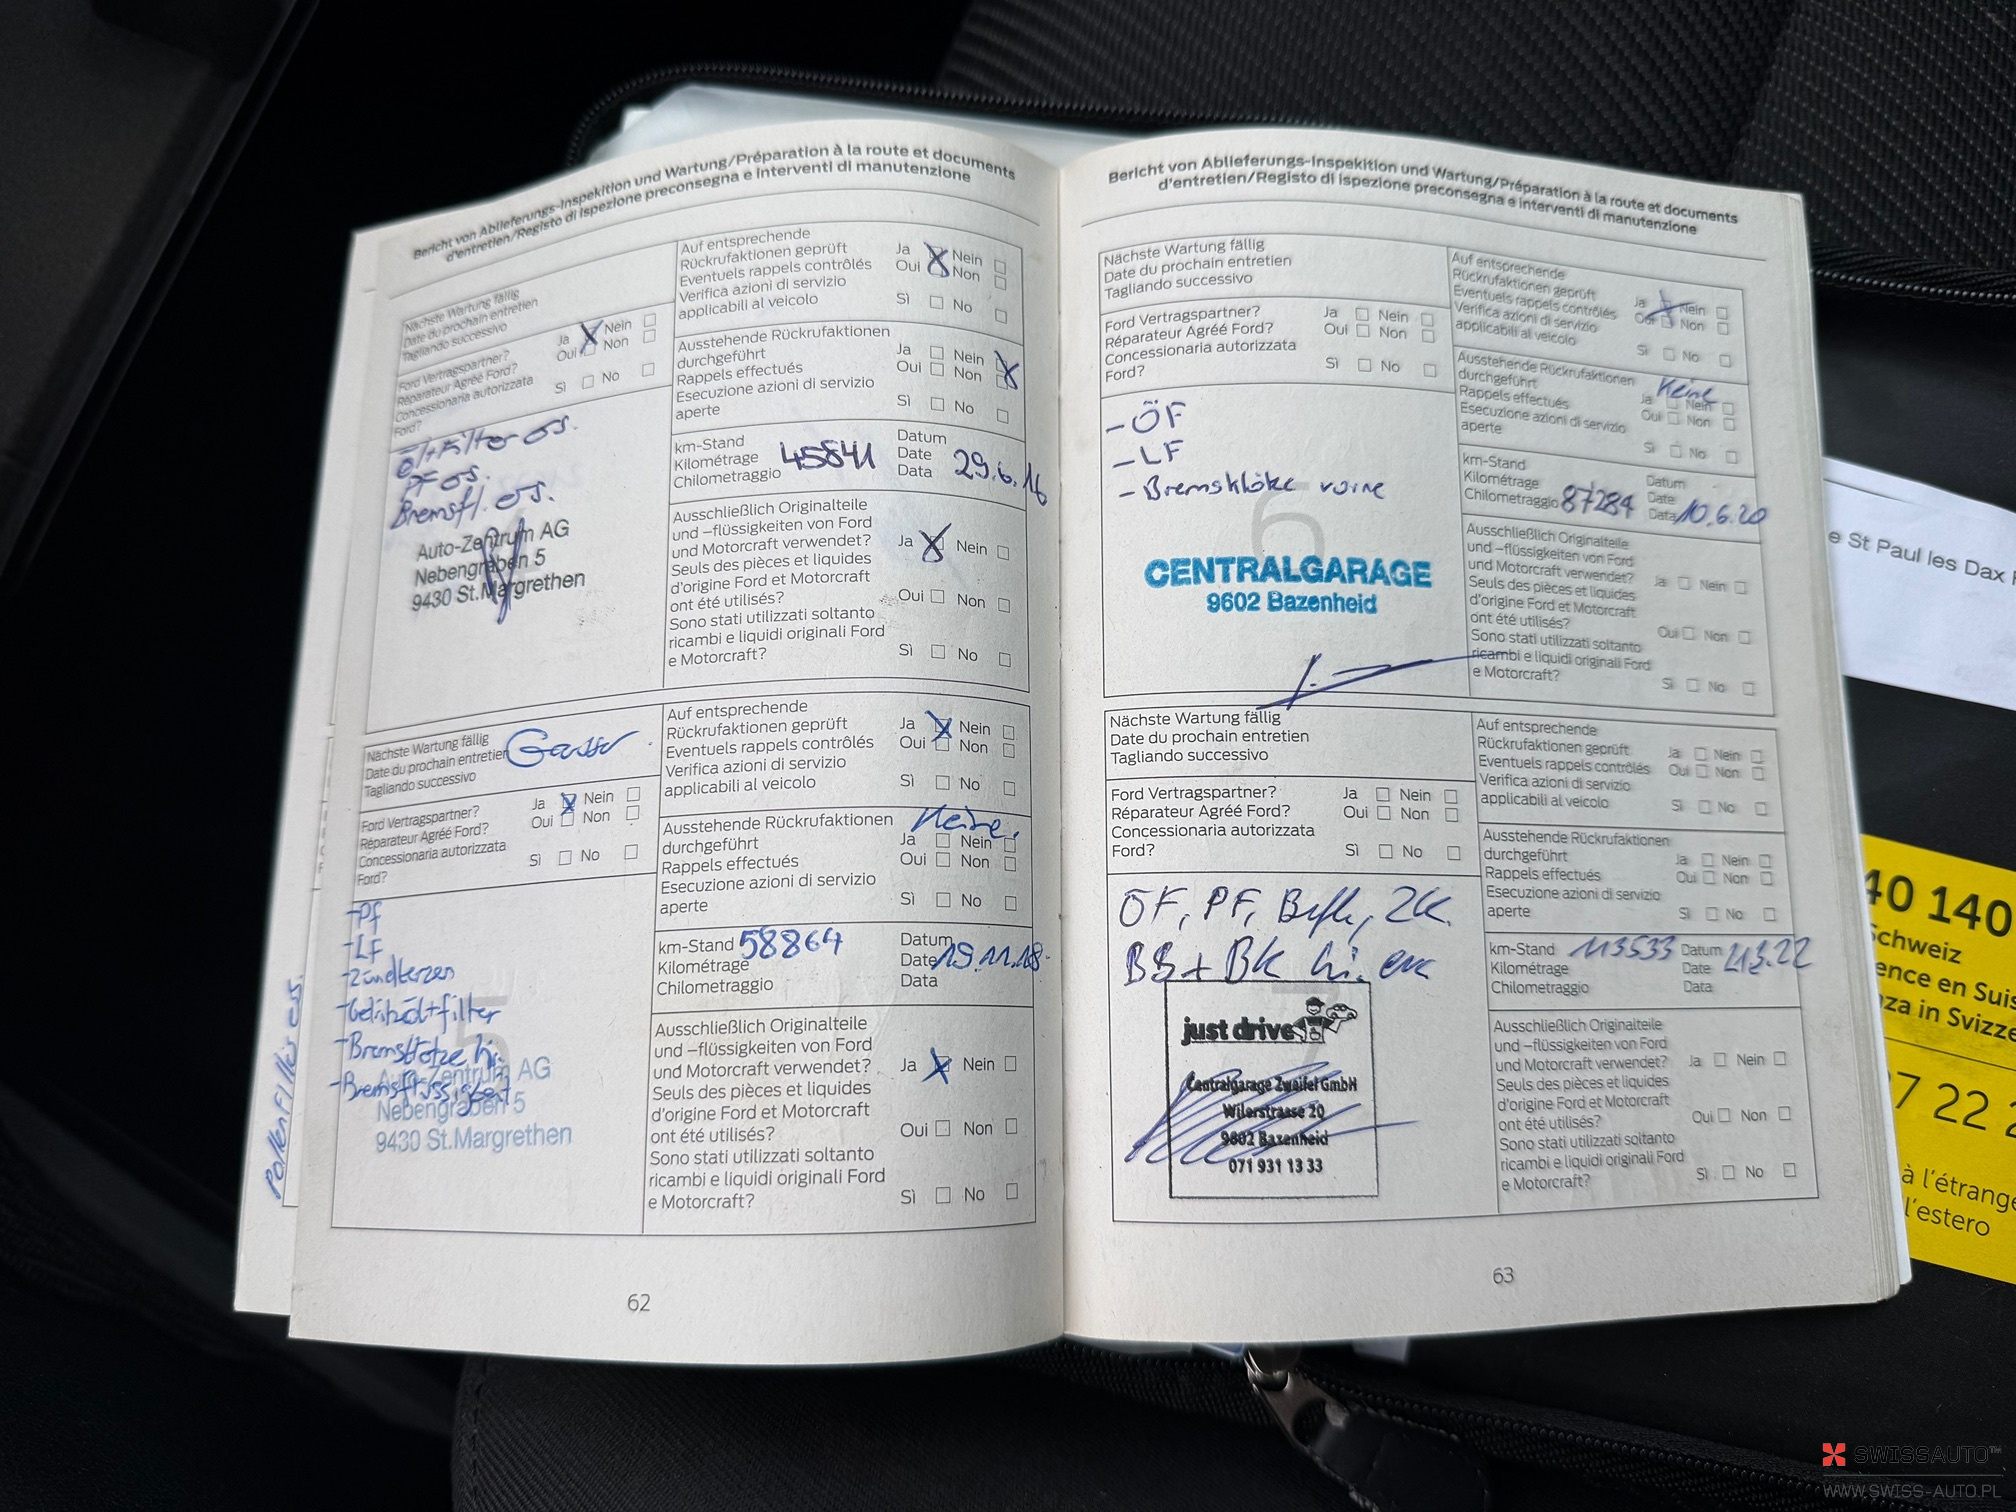 Bericht von Ablieferungs-Inspekition und Wartung/Préparation à la route et documents
d'entretien/Registo di ispezione preconsegna e interventi di manutenzione
Nächste Wartung fällig
Date du prochain entretien
Tagliando successivo
Ford Vertragspartner?
Réparateur Agréé Ford?
Concessionaria autorizzata
Ford?
Ja Nein
Oui Non
Sì No
Öl+Filter os.
PF os.
Bremsfl. os.
Auto-Zentrum AG
Nebengraben 5
9430 St.Margrethen
Auf entsprechende
Rückrufaktionen geprüft
Eventuels rappels contrôlés
Verifica azioni di servizio
applicabili al veicolo
Ja Nein
Oui Non
Sì No
Ausstehende Rückrufaktionen
durchgeführt
Rappels effectués
Esecuzione azioni di servizio
aperte
Ja Nein
Oui Non
Sì No
km-Stand
Kilométrage
Chilometraggio
45841
Datum
Date
Data
29.6.16
Ausschließlich Originalteile
und –flüssigkeiten von Ford
und Motorcraft verwendet?
Seuls des pièces et liquides
d'origine Ford et Motorcraft
ont été utilisés?
Sono stati utilizzati soltanto
ricambi e liquidi originali Ford
e Motorcraft?
Ja Nein
Oui Non
Sì No
Nächste Wartung fällig
Date du prochain entretien
Tagliando successivo
Ford Vertragspartner?
Réparateur Agréé Ford?
Concessionaria autorizzata
Ford?
Ja Nein
Oui Non
Sì No
5
-PF
-LF
-Zündkerzen
-Getriebeöl+filter
-Bremsklötze hi.
-Bremsflüssigkeit
Auto-Zentrum AG
Nebengraben 5
9430 St.Margrethen
Auf entsprechende
Rückrufaktionen geprüft
Eventuels rappels contrôlés
Verifica azioni di servizio
applicabili al veicolo
Ja Nein
Oui Non
Sì No
Ausstehende Rückrufaktionen
durchgeführt
Rappels effectués
Esecuzione azioni di servizio
aperte
Keine.
Ja Nein
Oui Non
Sì No
km-Stand
Kilométrage
Chilometraggio
58864
Datum
Date
Data
19.11.18.
Ausschließlich Originalteile
und –flüssigkeiten von Ford
und Motorcraft verwendet?
Seuls des pièces et liquides
d'origine Ford et Motorcraft
ont été utilisés?
Sono stati utilizzati soltanto
ricambi e liquidi originali Ford
e Motorcraft?
Ja Nein
Oui Non
Sì No
62
Bericht von Ablieferungs-Inspekition und Wartung/Préparation à la route et documents
d'entretien/Registo di ispezione preconsegna e interventi di manutenzione
Nächste Wartung fällig
Date du prochain entretien
Tagliando successivo
Ford Vertragspartner?
Réparateur Agréé Ford?
Concessionaria autorizzata
Ford?
Ja Nein
Oui Non
Sì No
6
- ÖF
- LF
- Bremsklötze vorne
CENTRALGARAGE
9602 Bazenheid
Auf entsprechende
Rückrufaktionen geprüft
Eventuels rappels contrôlés
Verifica azioni di servizio
applicabili al veicolo
Ja Nein
Oui Non
Sì No
Ausstehende Rückrufaktionen
durchgeführt
Rappels effectués
Esecuzione azioni di servizio
aperte
Keine
Ja Nein
Oui Non
Sì No
km-Stand
Kilométrage
Chilometraggio
87284
Datum
Date
Data
10.6.20
Ausschließlich Originalteile
und –flüssigkeiten von Ford
und Motorcraft verwendet?
Seuls des pièces et liquides
d'origine Ford et Motorcraft
ont été utilisés?
Sono stati utilizzati soltanto
ricambi e liquidi originali Ford
e Motorcraft?
Ja Nein
Oui Non
Sì No
Nächste Wartung fällig
Date du prochain entretien
Tagliando successivo
Ford Vertragspartner?
Réparateur Agréé Ford?
Concessionaria autorizzata
Ford?
Ja Nein
Oui Non
Sì No
ÖF, PF, ZK.
BS + BK hi.
just drive
Centralgarage Zweifel GmbH
Wilerstrasse 20
9602 Bazenheid
071 931 13 33
Auf entsprechende
Rückrufaktionen geprüft
Eventuels rappels contrôlés
Verifica azioni di servizio
applicabili al veicolo
Ja Nein
Oui Non
Sì No
Ausstehende Rückrufaktionen
durchgeführt
Rappels effectués
Esecuzione azioni di servizio
aperte
Ja Nein
Oui Non
Sì No
km-Stand
Kilométrage
Chilometraggio
113533
Datum
Date
Data
Ausschließlich Originalteile
und –flüssigkeiten von Ford
und Motorcraft verwendet?
Seuls des pièces et liquides
d'origine Ford et Motorcraft
ont été utilisés?
Sono stati utilizzati soltanto
ricambi e liquidi originali Ford
e Motorcraft?
Ja Nein
Oui Non
Sì No
63
e St Paul les Dax
40 140
Schweiz
ence en Suis
nza in Svizze
7 22 2
à l'étrange
l'estero
SWISSAUTO™
WWW.SWISS-AUTO.PL